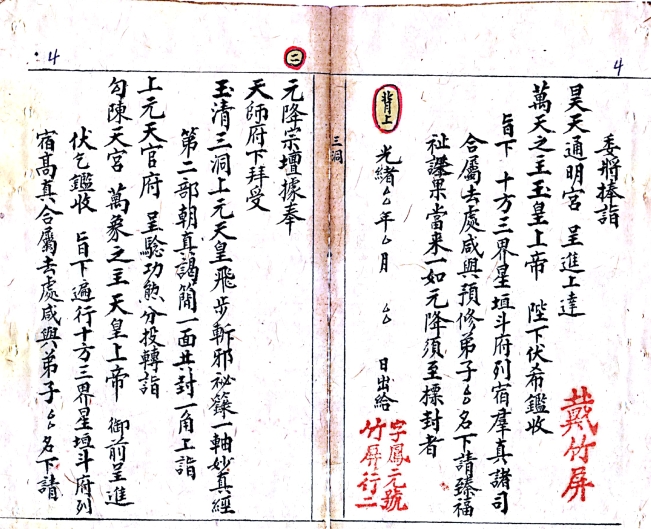 4
委將捧詣
昊天通明宮 呈進上達
萬天之主玉皇上帝 陛下伏希鑑收
旨下 十方三界星垣斗府列宿羣真諸司
合屬去處咸與預修弟子厶厶名下請臻福
祉證果當來一如元降須至標封者
背上
光緒厶厶年厶月 厶厶 日出給
戴竹屏
字鳳元號
竹屏行二
三洞
4
二
元降宗壇據奉
天師府下拜受
玉清三洞上元天皇飛步斬邪祕籙一軸妙真經
第二部朝真謁簡一面共封一角上詣
上元天官府 呈驗功熊分投轉詣
勾陳天宮 萬象之主天皇上帝 御前呈進
伏乞鑑收 旨下遍行十方三界星垣斗府列
宿高真合屬去處咸與弟子厶厶名下請